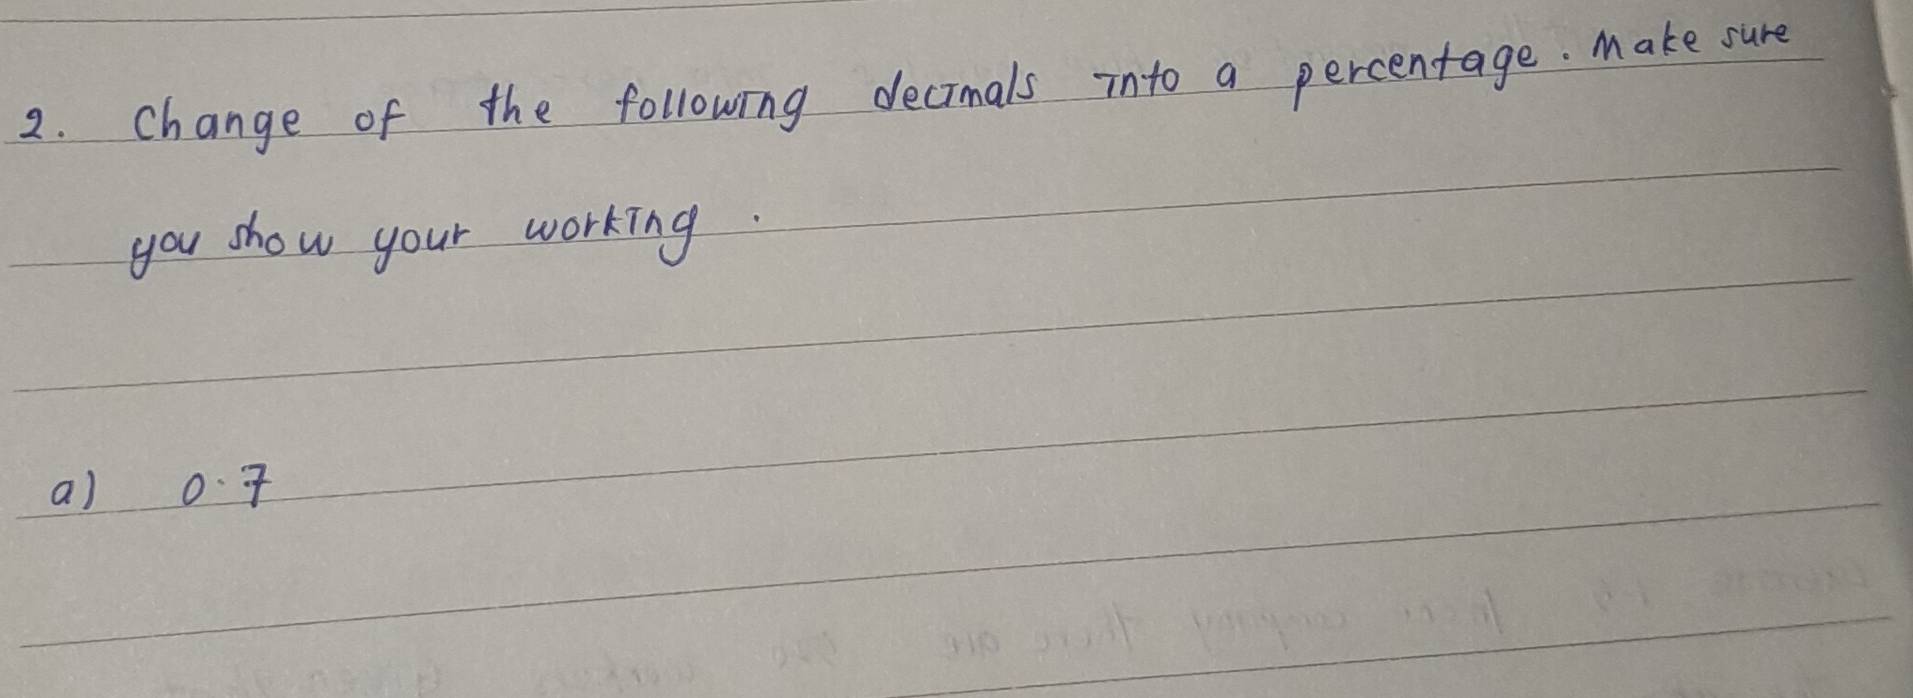 2. Change of the following decimals into a percentage. Make sure
you show your working.
a) 0.7